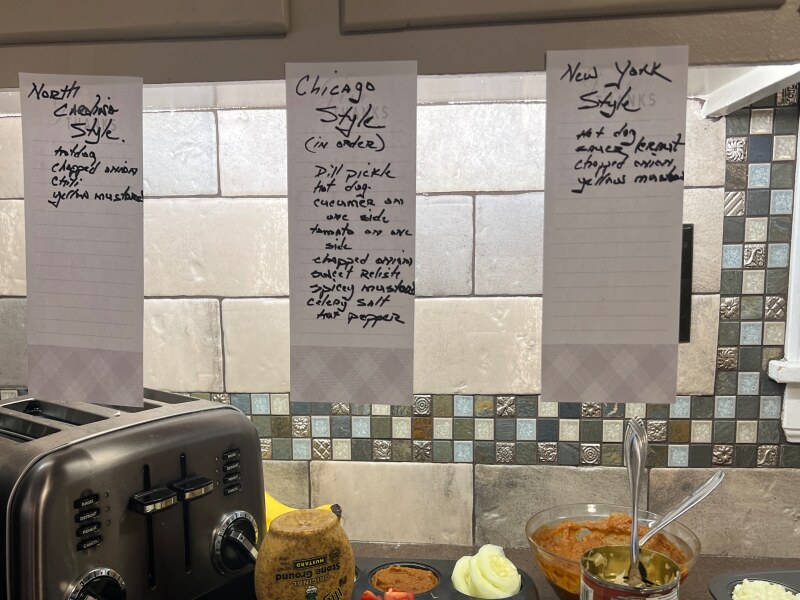 North
Carolina
Style.
Hotdog
chopped onion
chili
yellow mustard
Chicago
Style
(in order)
Dill pickle
hot dog
cucumer on
one side
tomato on one
side
chopped onion
sweet Relish
spicey mustard
celery salt
hot pepper
New York
Style
Hot dog
sauer kraut
chopped onion
yellow mustard
Stone Ground
MUSTARD
ORIGINAL